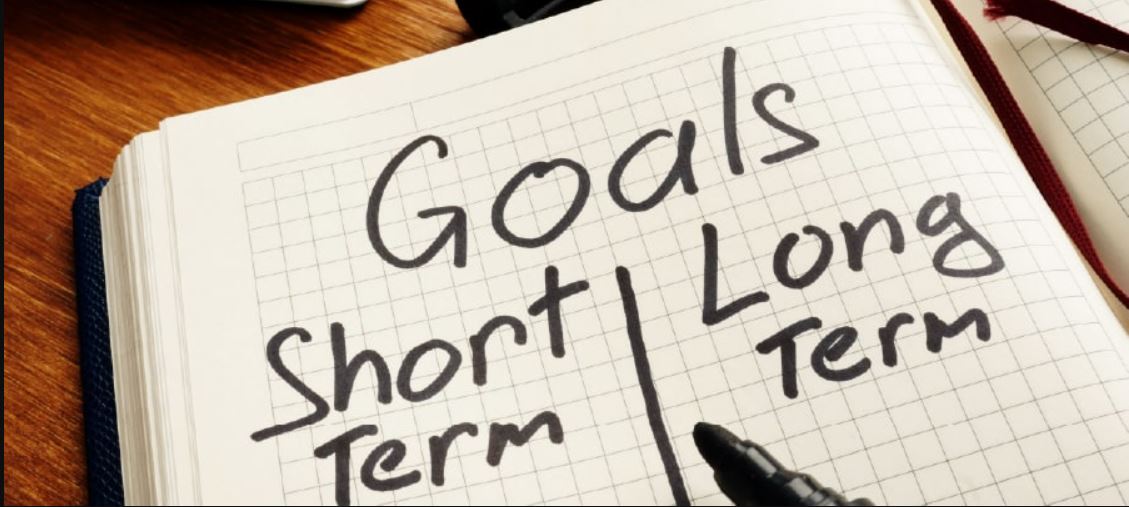 Goals
Short Term
Long Term